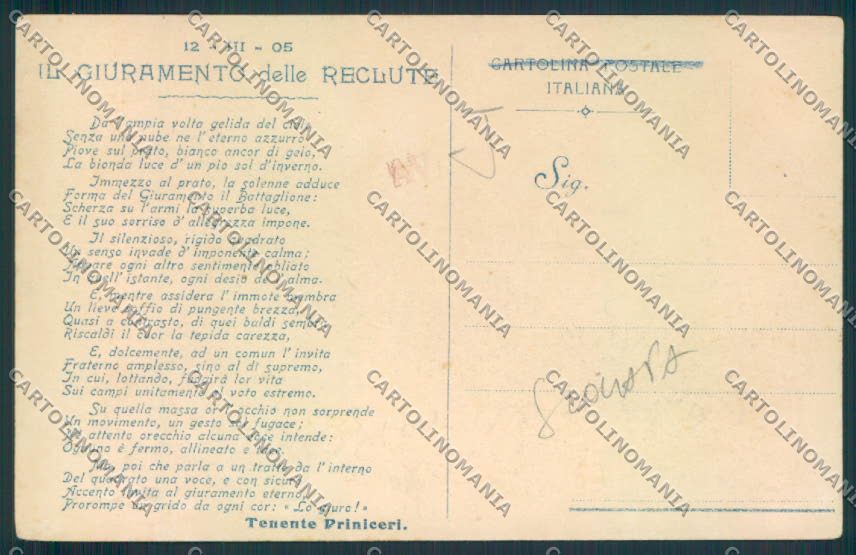 12 - III - 05
IL GIURAMENTO delle RECLUTE
Da l'ampia volta gelida del cielo
Senza una nube ne l'eterno azzurro
Piove sul prato, bianco ancor di gelo,
La bionda luce d'un pio sol d'inverno.
Immezzo al prato, la solenne adduce
Forma del Giuramento il Battaglione:
Scherza su l'armi la superba luce,
E il suo sorriso d'allegrezza impone.
Il silenzioso, rigido quadrato
Un senso invade d'imponente calma;
Appare ogni altro sentimento obliato
In quell'istante, ogni desio dell'alma.
E, mentre assidera l'immote membra
Un lieve soffio di pungente brezza,
Quasi a contrasto, di quei baldi sembra
Riscaldi il cuor la tepida carezza,
E, dolcemente, ad un comun l'invita
Fraterno amplesso, sino al dì supremo,
In cui, lottando, fuggirà lor vita
Sui campi unitamente a voto estremo.
Su quella massa or l'occhio non sorprende
Un movimento, un gesto sol fugace;
Nè attento orecchio alcuna voce intende:
Ognuno è fermo, allineato e tace.
Ma, poi che parla a un tratto da l'interno
Del quadrato una voce, e con sicuro
Accento invita al giuramento eterno,
Prorompe un grido da ogni cor: « Lo giuro! »
Tenente Priniceri.
CARTOLINA POSTALE
ITALIANA
Sig.
CARTOLINOMANIA